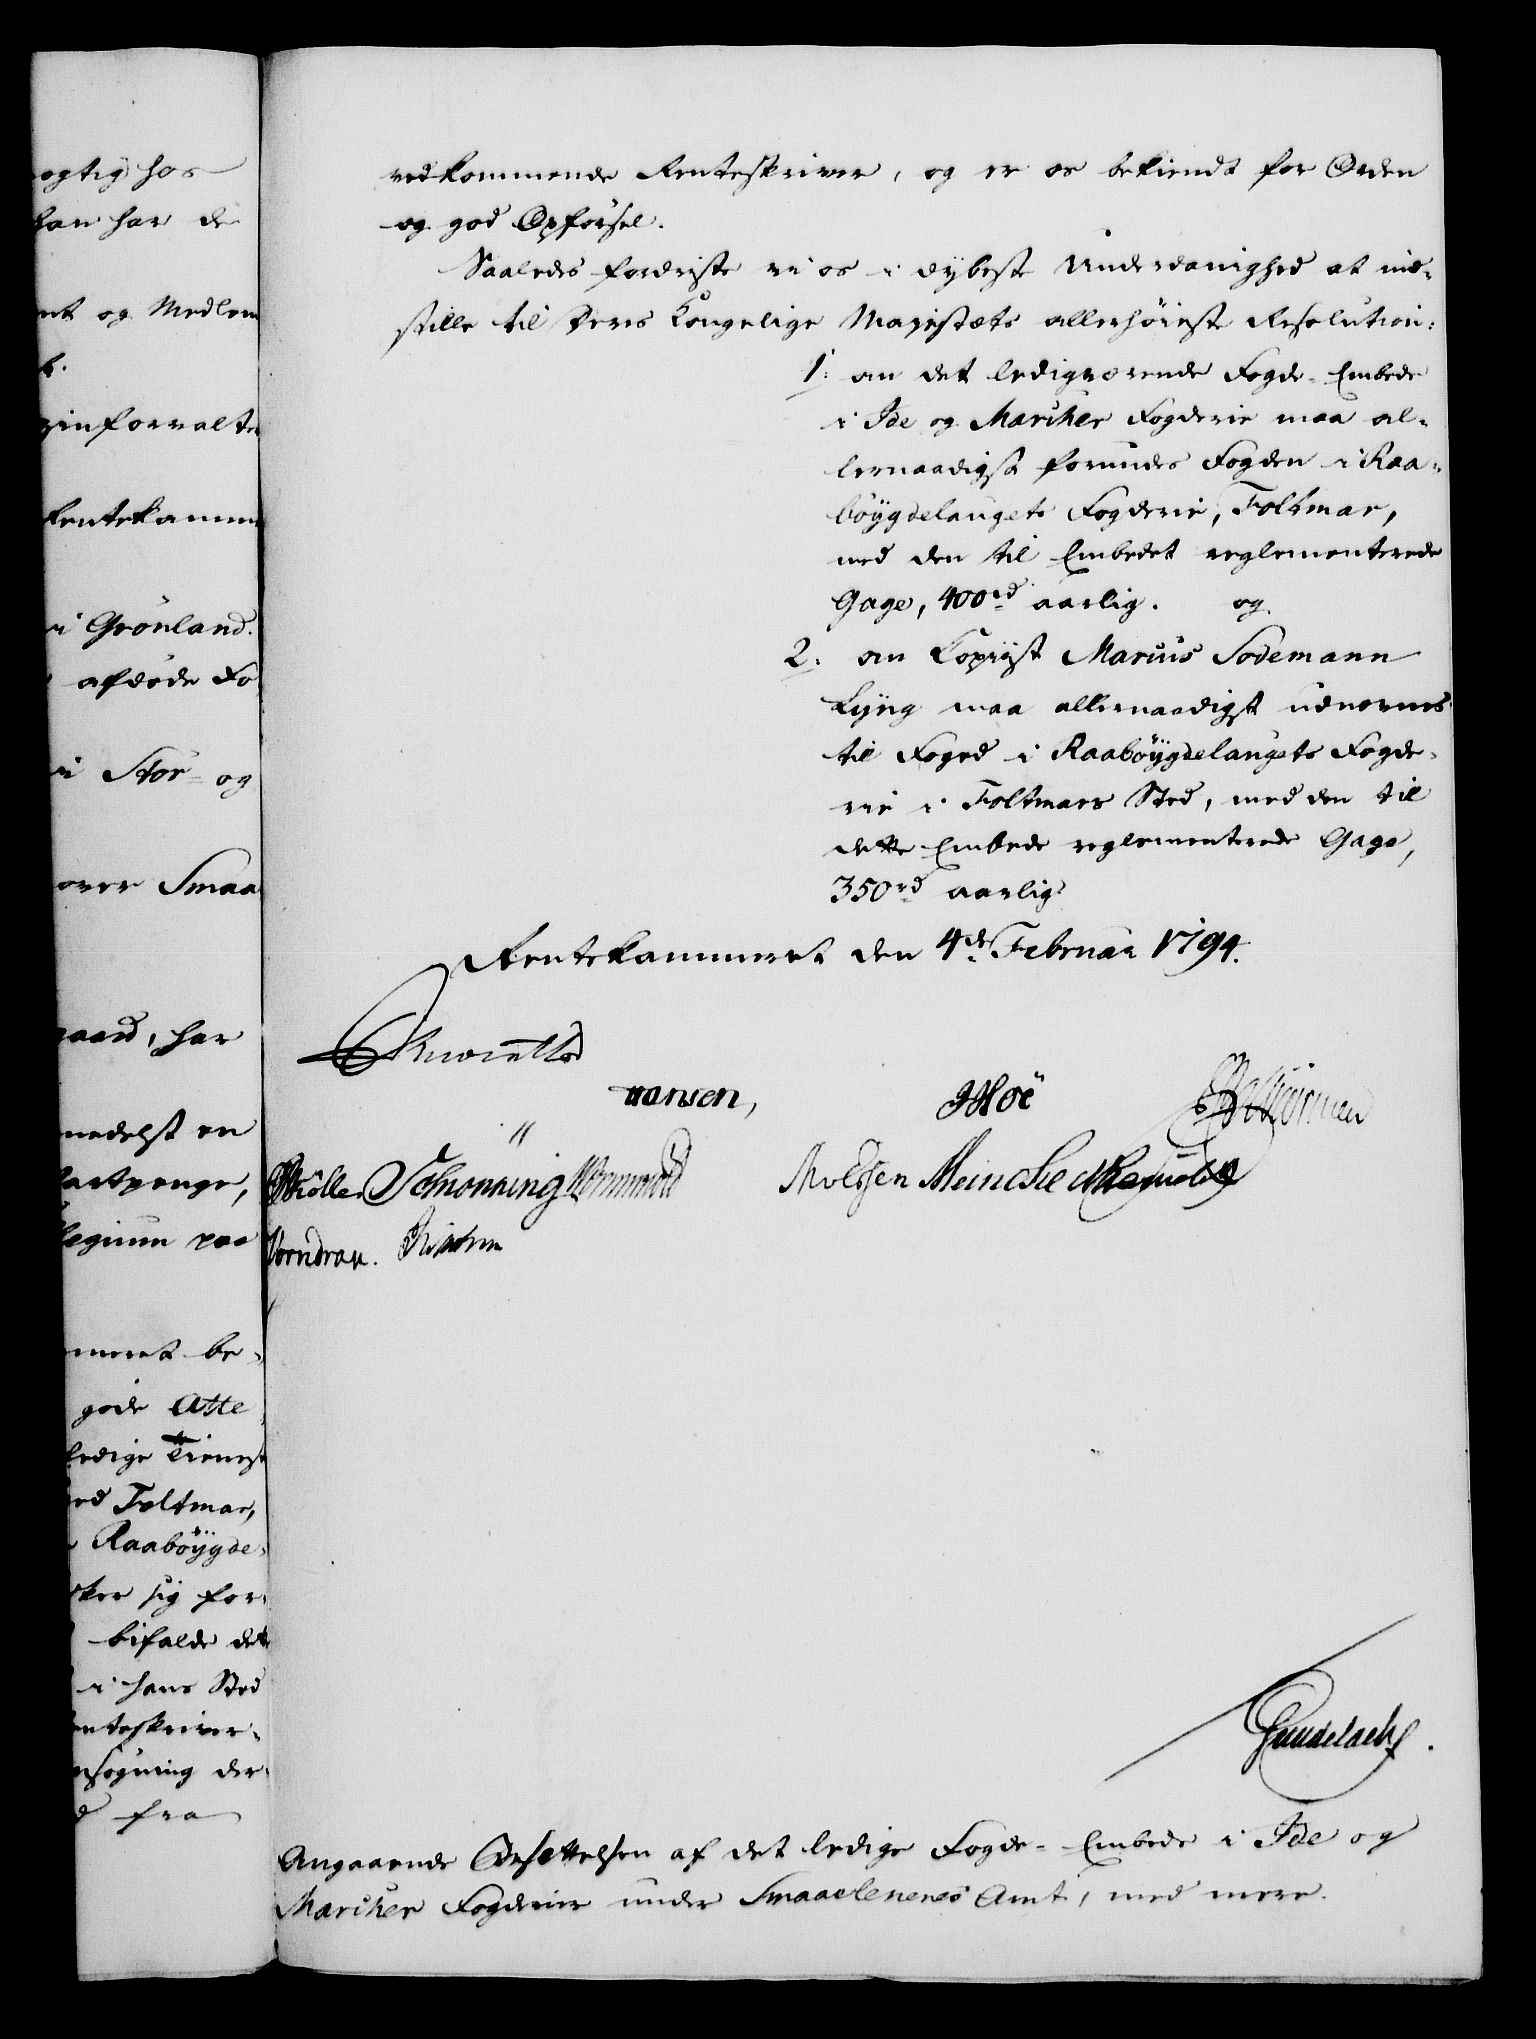 ogtig hos
han har de
nt og Medlem
inforvalte
Rentekamme
i Grönland.
afdöde Fo
i Stor- og
over Smaa
gaard, har
medelst en
artpenge,
legium paa
meret be-
gode Atte
ledige Tienest
ed Foltmar,
Raaböÿgde-
sker sig for-
bifalde dette
i hans Sted
enteskriver-
nsøgning der-
fra
vedkommende Renteskriver, og er os bekiendt for Orden
og god Opförsel.
Saaledes fordriste vi os i dybeste Underdanighed at ind-
stille til Deres Kongelige Majestæts allerhöieste Resolution:
1: om det ledigværende Fogde-Embede
i Ide og Marcker Fogderie maa al-
lernaadigst forundes Fogden i Raa-
böÿgdelaugets Fogderie, Foltmar,
med den til Embedet reglementerede
Gage, 400rd aarlig. og
2: om Copiist Marius Sodemann
Lÿng maa allernaadigst udnævnes
til Foged i Raaböÿgdelaugets Fogde-
rie i Foltmars Sted, med den til
dette Embede reglementerede Gage,
350rd aarlig?
Rentekammeret den 4de Februar 1794.
Hansen,
Möller Schönning Wormskiold Meincke
Vorndran.
Gundelach
Angaaende Besættelsen af det ledige Fogde-Embede i Ide og
Marcker Fogderie under Smaaelenenes Amt, med mere.